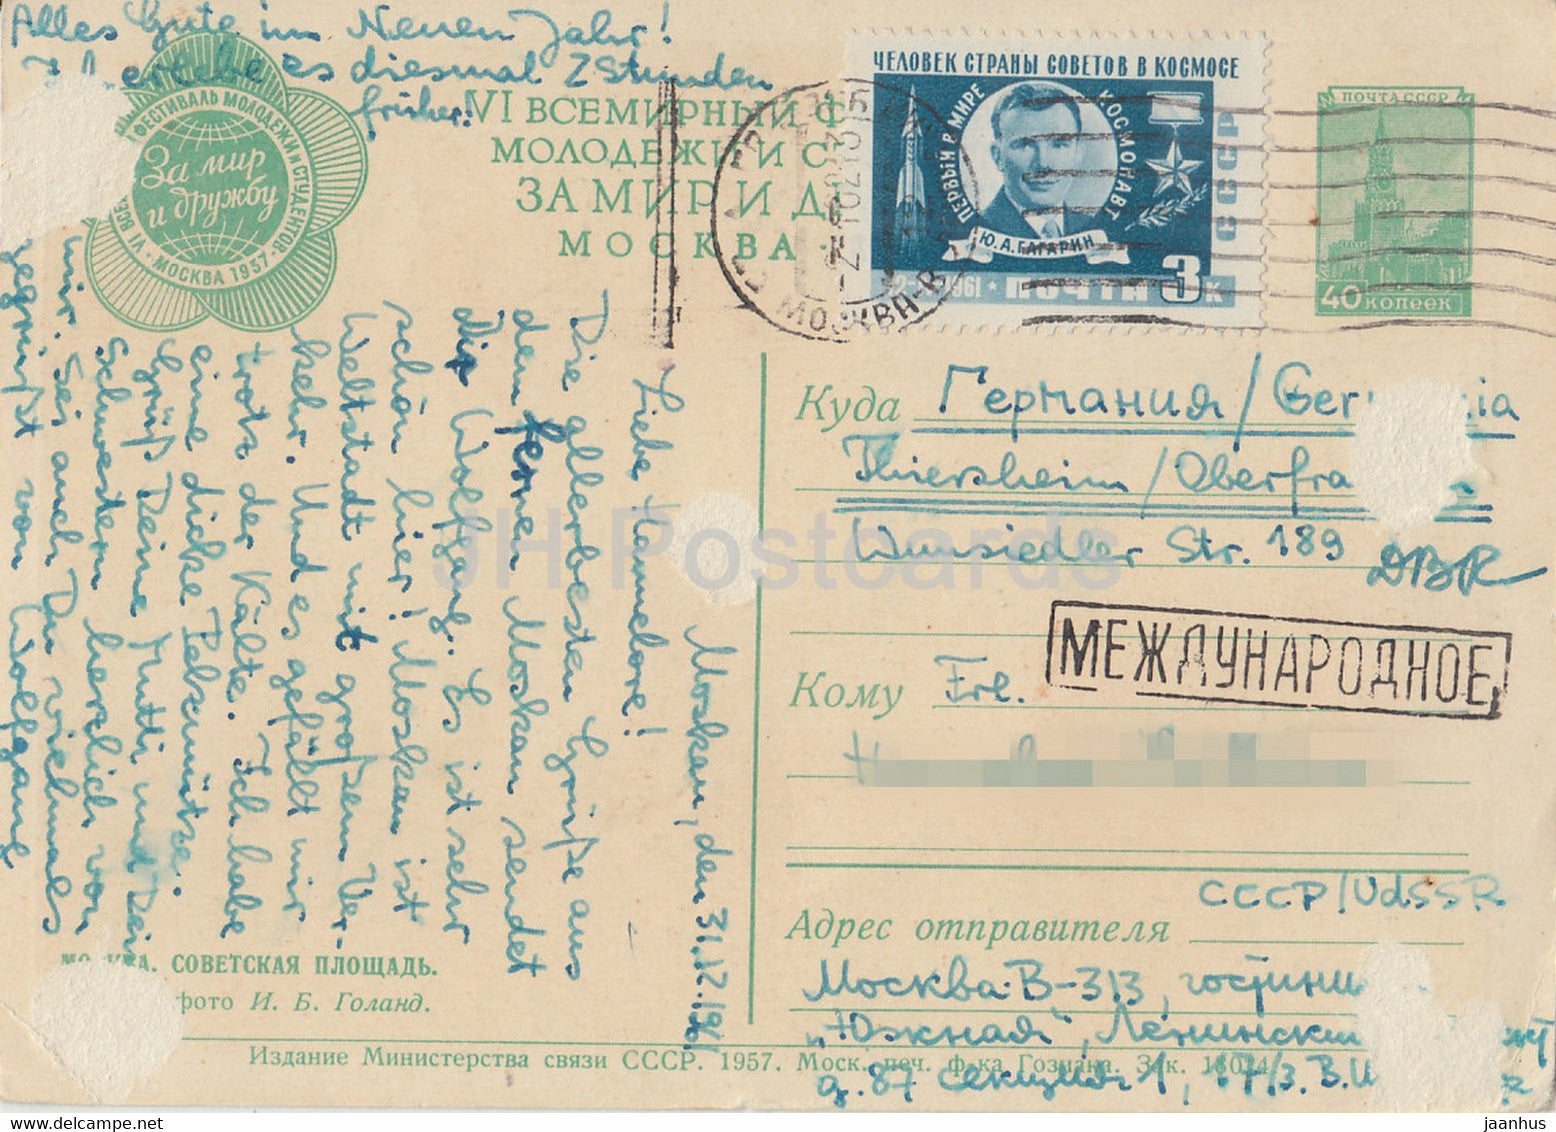 Alles Gute im Neuen Jahr!
es diesmal 2 Stunden
früher!
VI ВСЕМИРНЫЙ Ф
МОЛОДЕЖИ И С
ЗА МИР И Д
МОСКВА
ФЕСТИВАЛЬ МОЛОДЕЖИ И СТУДЕНТОВ
За мир
и дружбу
МОСКВА 1957
ЧЕЛОВЕК СТРАНЫ СОВЕТОВ В КОСМОСЕ
ПЕРВЫЙ В МИРЕ КОСМОНАВТ
Ю. А. ГАГАРИН
СССР
1961 ПОЧТА 3 К
МОСКВА-В
ПОЧТА СССР
40 КОПЕЕК
Moskau, den 31.12.1961
Liebe Hannelore!
Die allerbesten Grüße aus
dem fernen Moskau sendet
dir Wolfgang. Es ist sehr
schön hier! Moskau ist
Weltstadt mit großem Ver-
kehr. Und es gefällt mir
trotz der Kälte. Ich habe
eine dicke Pelzmütze.
Grüß Deine Mutti und Dein
Schwestern herzlich von
mir. Sei auch Du vielmals
gegrüßt von Wolfgang
Куда Германия /
Thiersheim / Oberfra
Wunsiedler Str. 189
DBR
МЕЖДУНАРОДНОЕ
Кому Frl.
H
СССР/UdSSR
Адрес отправителя
Москва В-313, гостини
„Южная", Ленинский
д. 87 секция 1,
МОСКВА. СОВЕТСКАЯ ПЛОЩАДЬ.
фото И. Б. Голанд.
Издание Министерства связи СССР. 1957. Моск. печ. ф-ка Гознака. Зак.
JH Postcards
jaanhus